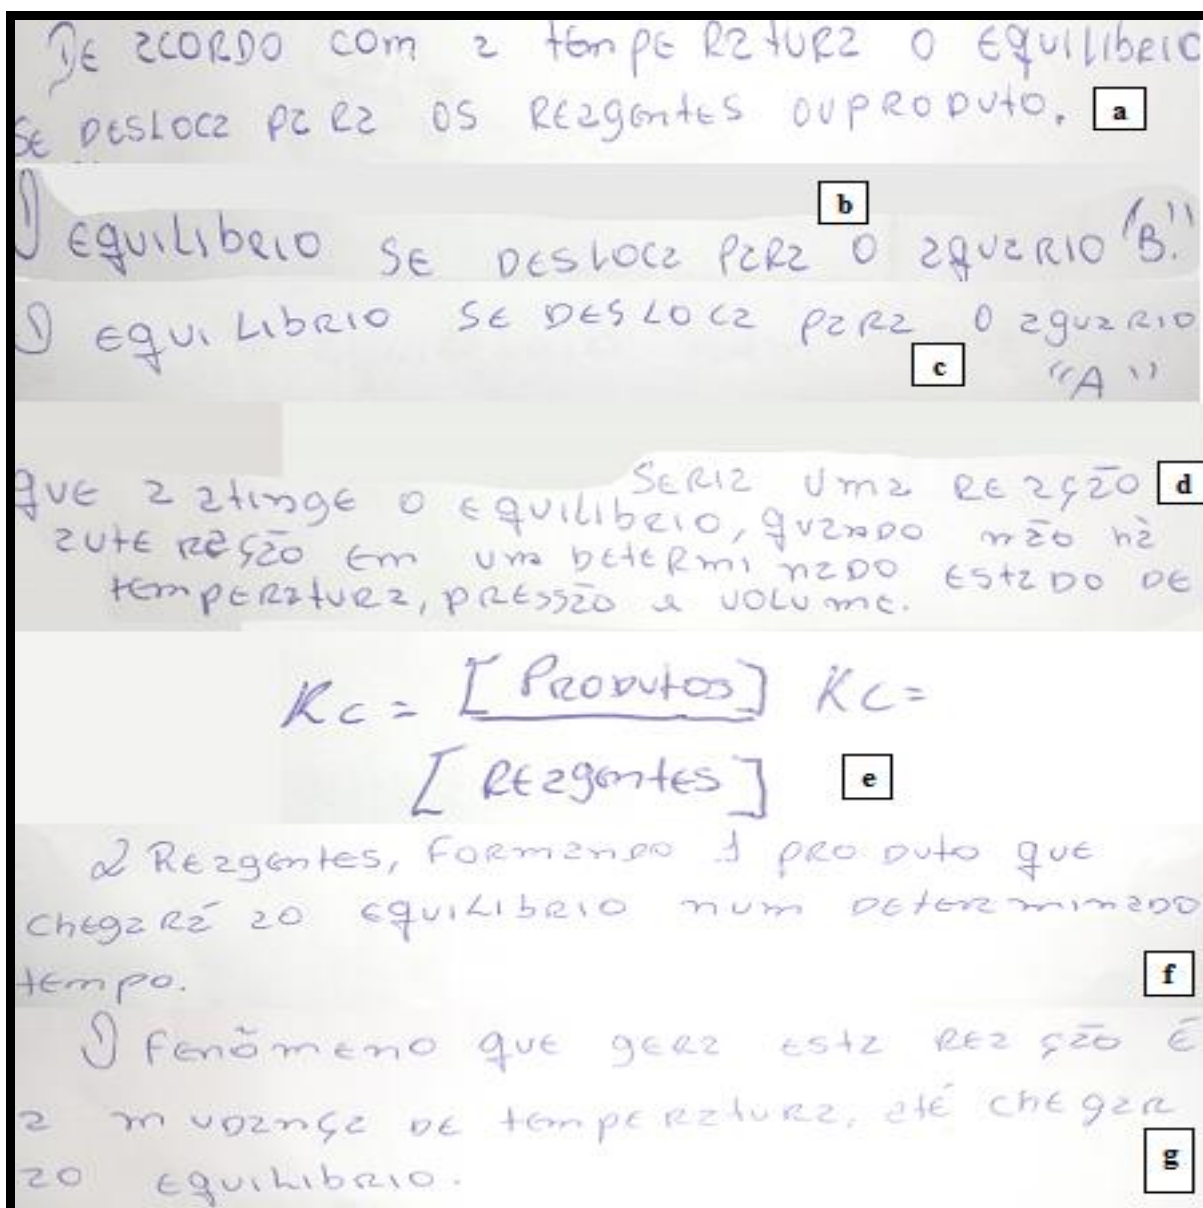 DE ACORDO COM A TEMPERATURA O EQUILIBRIO
SE DESLOCA PARA OS REAGENTES OU PRODUTO. a
b
O EQUILIBRIO SE DESLOCA PARA O AQUARIO "B."
O EQUILIBRIO SE DESLOCA PARA O AQUARIO
c "A"
SERIA UMA REAÇÃO d
QUE A ATINGE O EQUILIBRIO, QUANDO NÃO HÀ
REÇÃO EM UM DETERMINADO ESTADO DE
TEMPERATURA, PRESSÃO e VOLUME.
Kc = [PRODUTOS] Kc =
[REAGENTES] e
2 REAGENTES, FORMANDO 1 PRODUTO QUE
CHEGARÁ AO EQUILIBRIO NUM DETERMINADO
TEMPO. f
O FENÕMENO QUE GERA ESTA REAÇÃO É
A MUDANÇA DE TEMPERATURA, ATÉ CHEGAR
AO EQUILIBRIO. g